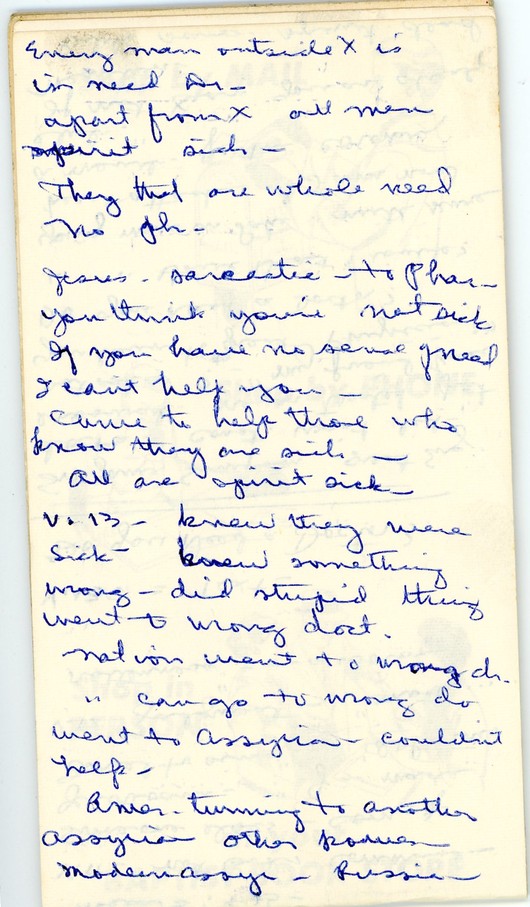 Every man outside X is
in need Dr -
apart from X all men
spirit sick -
They that are whole need
no ph -
Jesus - sarcastic - to Phar -
you think you're not sick
If you have no sense of need
I can't help you -
Came to help those who
know they are sick -
all are spirit sick -
v. 13 - knew they were
sick - knew something
wrong - did stupid thing
went to wrong doct.
nation went to wrong dr.
" can go to wrong do
went to Assyria - couldn't
help -
Amer. turning to another
Assyria other powers
modern Assyr - Russia